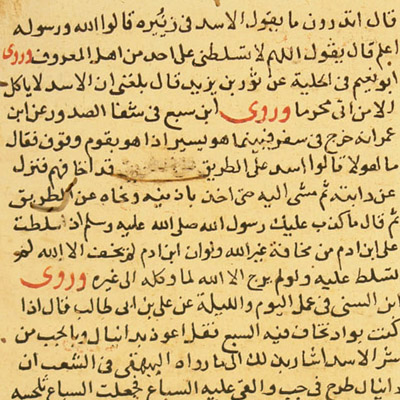 قال اتدرون ما يقول الاسد فى زئيره قالوا الله ورسوله
اعلم قال يقول اللهم لا تسلطنى على احد من اهل المعروف وروى
ابو نعيم فى الحلية عن ثور بن يزيد قال بلغنى ان الاسد لا ياكل
الا من اتى محرما وروى ابن سبع فى شفا الصدور عن ابن
عمر انه خرج فى سفر فبينما هو يسير اذا هو بقوم وقوف فقال
ما لهولا قالوا اسد على الطريق قد اخافهم فنزل
عن دابته ثم مشى اليه حتى اخذ باذنيه ونحاه عن الطريق
ثم قال ما كذب عليك رسول الله صلى الله عليه وسلم انما سلطت
على ابن ادم من مخافة غير الله ولو ان ابن ادم لم يخف الا الله لم
تسلط عليه ولو لم يرج الا الله لما وكله الى غيره وروى
ابن السنى فى عمل اليوم والليلة عن على بن ابى طالب قال اذا
كنت بواد تخاف فيه السبع فقل اعوذ بدانيال وبالجب من
شر الاسد اشار بذلك الى ما رواه البيهقى فى الشعب ان
دانيال طرح فى جب والقى عليه السباع فجعلت السباع تلحسه